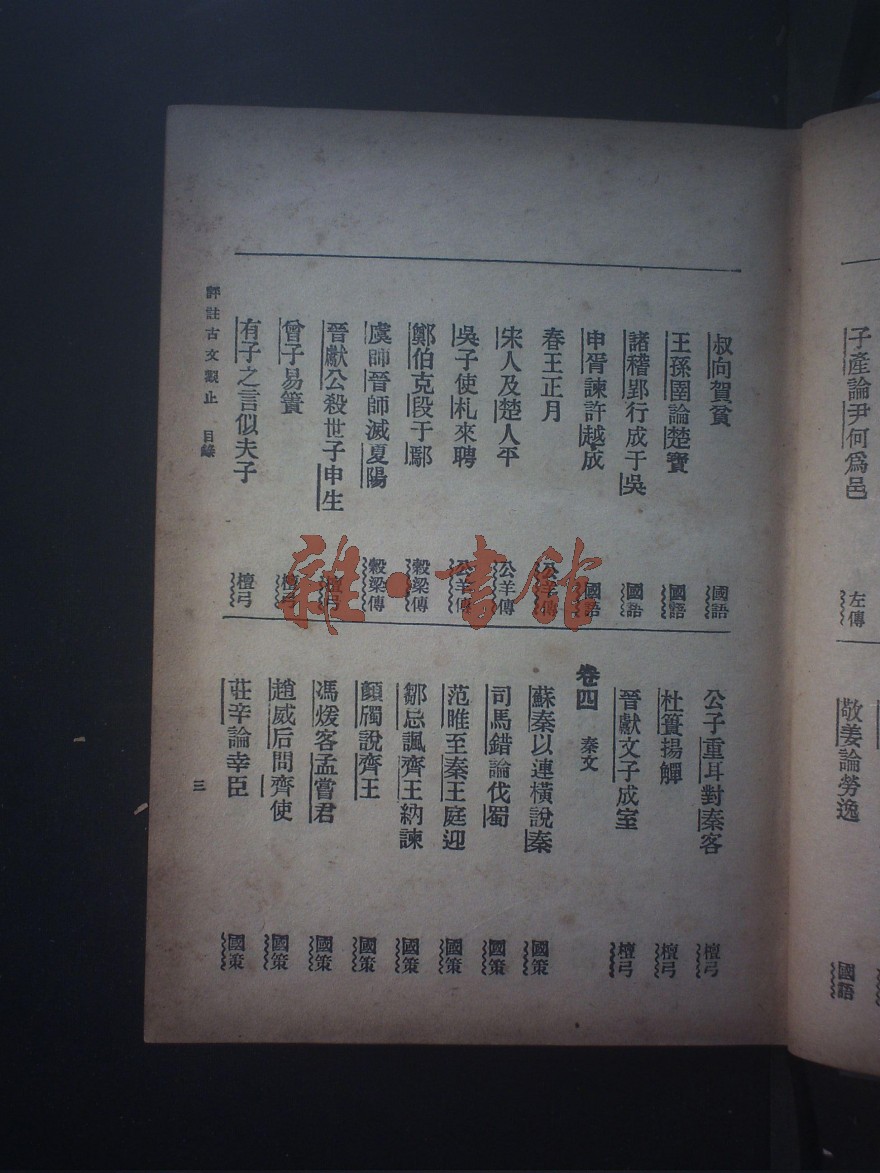 子產論尹何爲邑 左傳
敬姜論勞逸 國語
叔向賀貧 國語
王孫圉論楚寶 國語
諸稽郢行成于吳 國語
申胥諫許越成 國語
春王正月 公羊傳
宋人及楚人平 公羊傳
吳子使札來聘 公羊傳
鄭伯克段于鄢 穀梁傳
虞師晉師滅夏陽 穀梁傳
晉獻公殺世子申生 檀弓
曾子易簀 檀弓
有子之言似夫子 檀弓
公子重耳對秦客 檀弓
杜簣揚觶 檀弓
晉獻文子成室 檀弓
卷四 秦文
蘇秦以連橫說秦 國策
司馬錯論伐蜀 國策
范雎至秦王庭迎 國策
鄒忌諷齊王納諫 國策
顏斶說齊王 國策
馮煖客孟嘗君 國策
趙威后問齊使 國策
莊辛論幸臣 國策
評註古文觀止 目錄
三
雜·書館